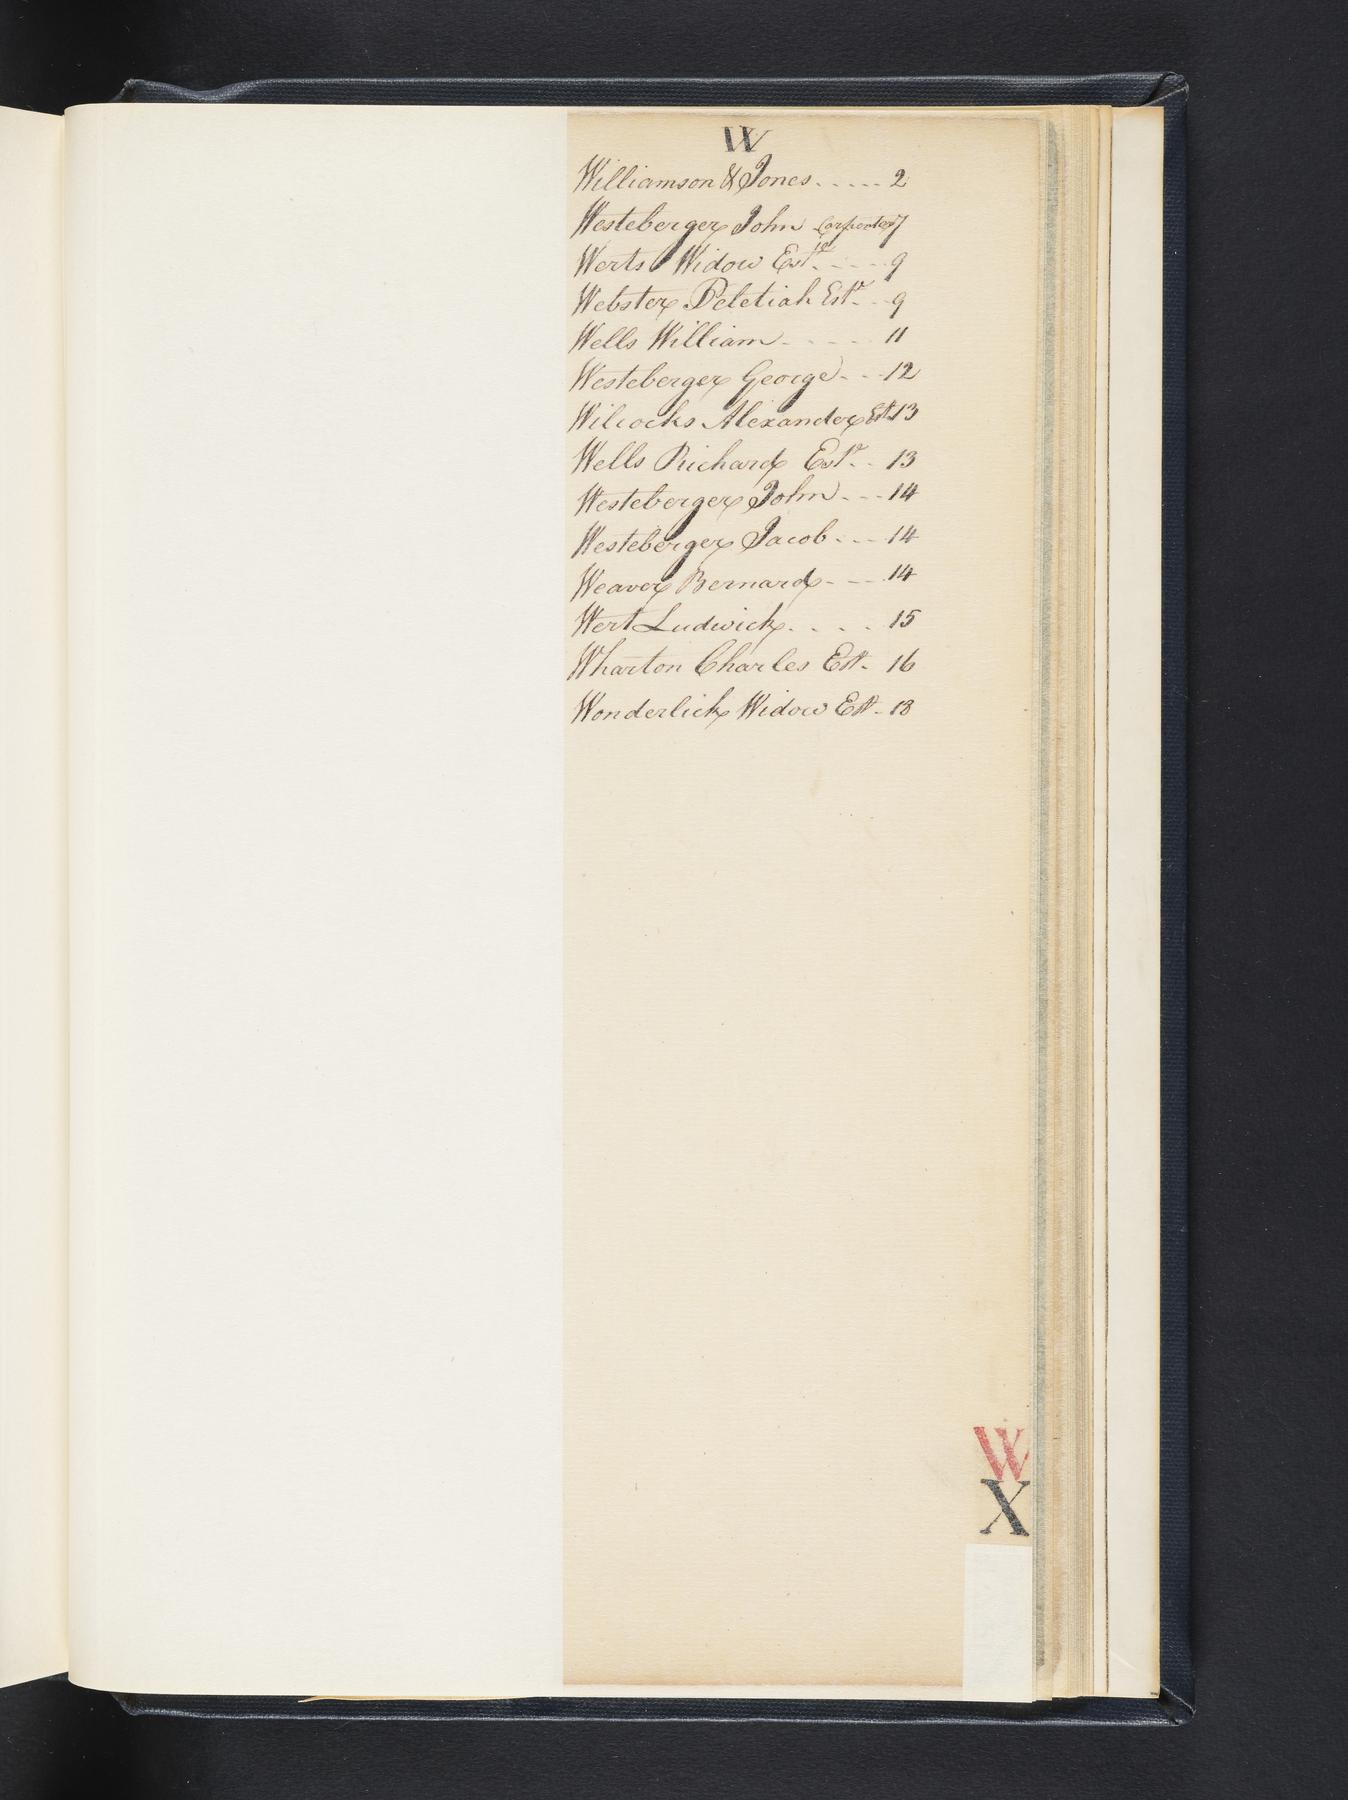 W
Williamson & Jones ..... 2
Westeberger John Carpenter 7
Werts Widow Estte. - - - 9
Webster Peletiah Estt. - - 9
Wells William - - - - - 11
Westeberger George - - - 12
Wilcocks Alexander Estt 13
Wells Richard Estt. - - 13
Westeberger John - - - 14
Westeberger Jacob - - - 14
Weaver Bernard - - - 14
Wert Ludwick. . . . . 15
Wharton Charles Estt - 16
Wonderlick Widow Estt - 18
W
X